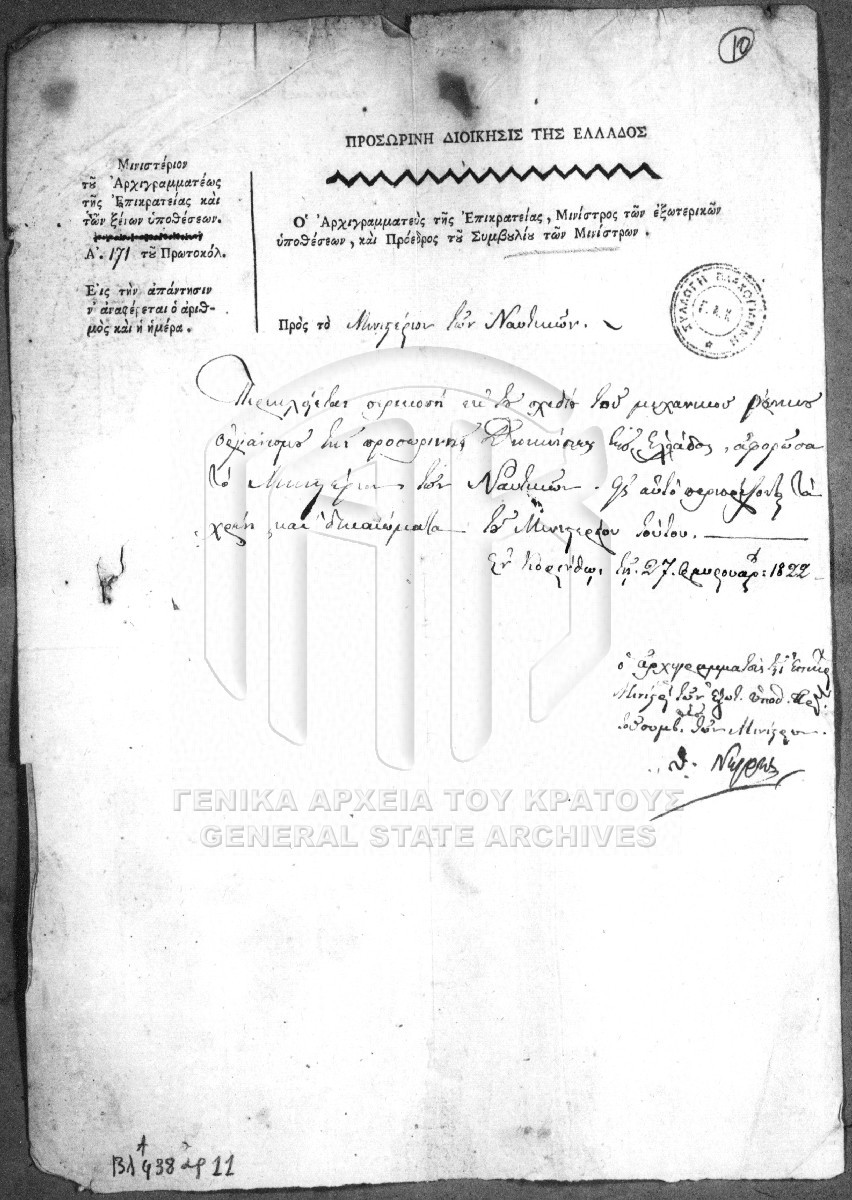 10
ΠΡΟΣΩΡΙΝΗ ΔΙΟΙΚΗΣΙΣ ΤΗΣ ΕΛΛΑΔΟΣ
Μινιστέριον
τȣ͂ Ἀρχιγραμματέως
τῆς Ἐπικρατείας καὶ
τῶν ξένων ὑποθέσεων.
Α'. 171 τοῦ Πρωτοκόλ.
Εἰς τὴν ἀπάντησιν
ν' ἀναφέρεται ὁ ἀριθ-
μὸς καὶ ἡ ἡμέρα.
Ο῾ Ἀρχιγραμματεὺς τῆς Ἐπικρατείας, Μινίστρος τῶν ἐξωτερικῶν
ὑποθέσεων, καὶ Πρόεδρος τȣ͂ Συμβȣλίȣ τῶν Μινίστρων.
ΣΥΛΛΟΓΗ ΒΛΑΧΟΓΙΑΝΝΗ
Γ.Α.Κ.
Πρὸς τὸ Μινιστέριον τῶν Ναυτικῶν.
Περικλείεται περικοπὴ ἐκ τοῦ σχεδίου τοῦ μηχανικοῦ
ὀργανισμοῦ τῆς προσωρινῆς Διοικήσεως τῆς Ἑλλάδος, ἀφορῶσα
τὸ Μινιστέριον τῶν Ναυτικῶν. αὐτὸ τὰ
χρέη καὶ δικαιώματα τοῦ Μινιστερίου τούτου.
Ἐν Κορίνθῳ, τῇ 27 Φευρουαρ: 1822
ὁ ἀρχιγραμματεὺς τῆς Ἐπικρ
Μινίστρ τῶν ἐξωτ. ὑποθ.
τοῦ συμβ. τῶν Μινίστρων.
Θ. Νέγρης
ΓΕΝΙΚΑ ΑΡΧΕΙΑ ΤΟΥ ΚΡΑΤΟΥΣ
GENERAL STATE ARCHIVES
ΒΛ Α 438 αρ 11